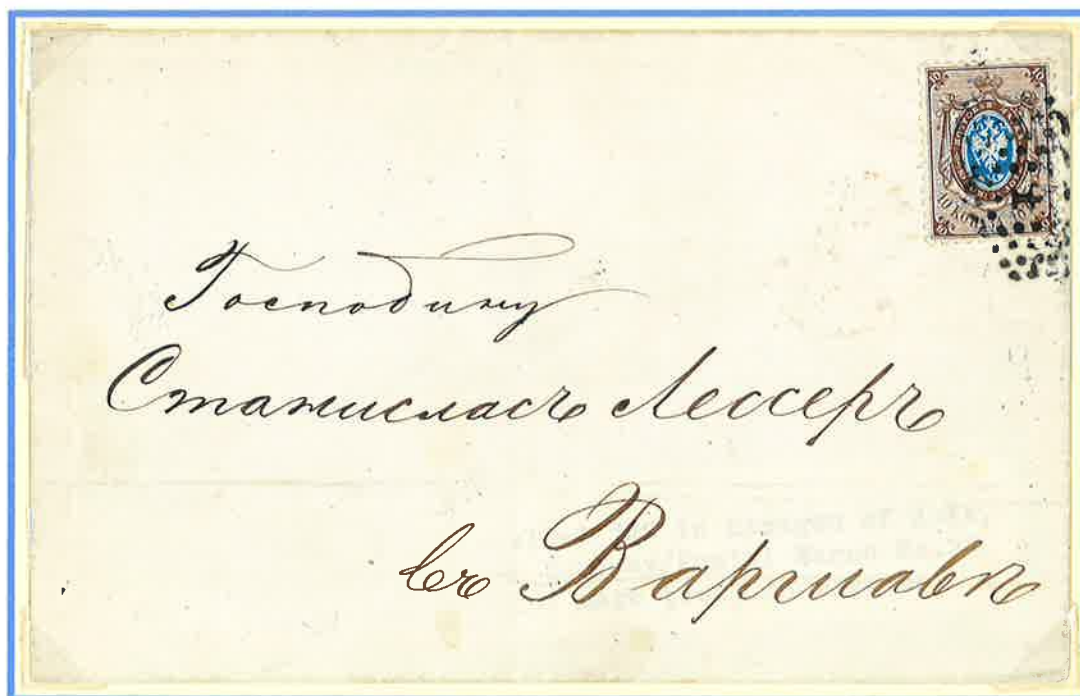 Господину
Станисласъ Лессеръ
въ Варшавѣ